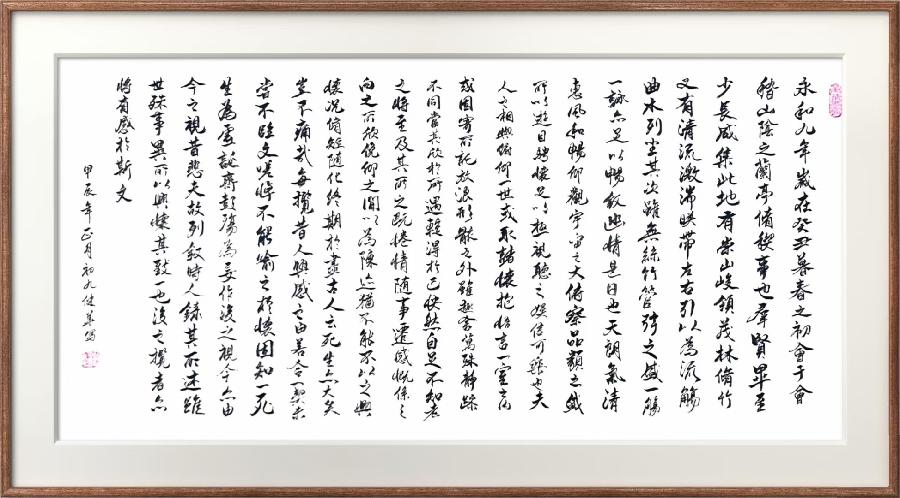 永和九年歲在癸丑暮春之初會于會
稽山陰之蘭亭脩稧事也群賢畢至
少長咸集此地有崇山峻領茂林脩竹
又有清流激湍暎帶左右引以為流觴
曲水列坐其次雖無絲竹管弦之盛一觴
一詠亦足以暢敘幽情是日也天朗氣清
惠風和暢仰觀宇宙之大俯察品類之盛
所以遊目騁懷足以極視聽之娛信可樂也夫
人之相與俯仰一世或取諸懷抱悟言一室之內
或因寄所託放浪形骸之外雖趣舍萬殊靜躁
不同當其欣於所遇蹔得於己快然自足不知老
之將至及其所之既惓情隨事遷感慨係之
向之所欣俛仰之間以為陳迹猶不能不以之興
懷況脩短隨化終期於盡古人云死生亦大矣
豈不痛哉每攬昔人興感之由若合一契未
嘗不臨文嗟悼不能喻之於懷固知一死
生為虛誕齊彭殤為妄作後之視今亦由
今之視昔悲夫故列敘時人錄其所述雖
世殊事異所以興懷其致一也後之攬者亦
將有感於斯文
甲辰年正月初九健華寫